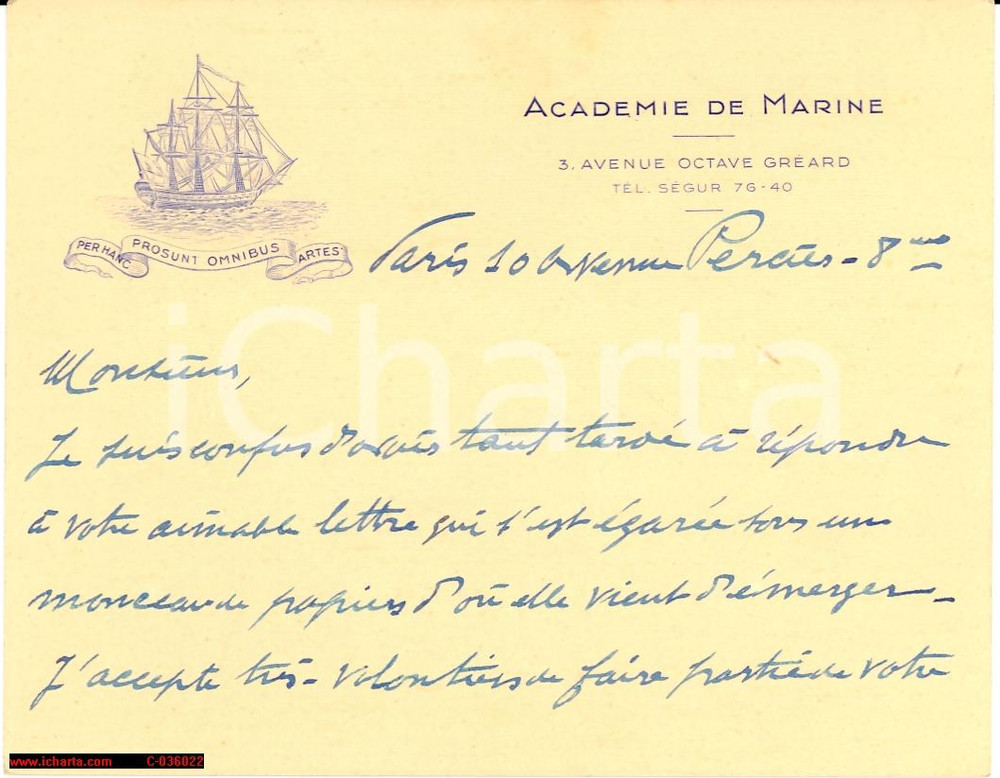 ACADEMIE DE MARINE
3, AVENUE OCTAVE GRÉARD
TÉL. SÉGUR 76-40
PER HANC PROSUNT OMNIBUS ARTES
Paris 10 Avenue Percier - 8me
Monsieur,
Je suis confus d'avoir tant tardé à répondre
à votre aimable lettre qui s'est égarée sous un
monceau de papiers d'où elle vient d'émerger -
J'accepte très-volontiers de faire partie de votre
iCharta
www.icharta.com C-036022